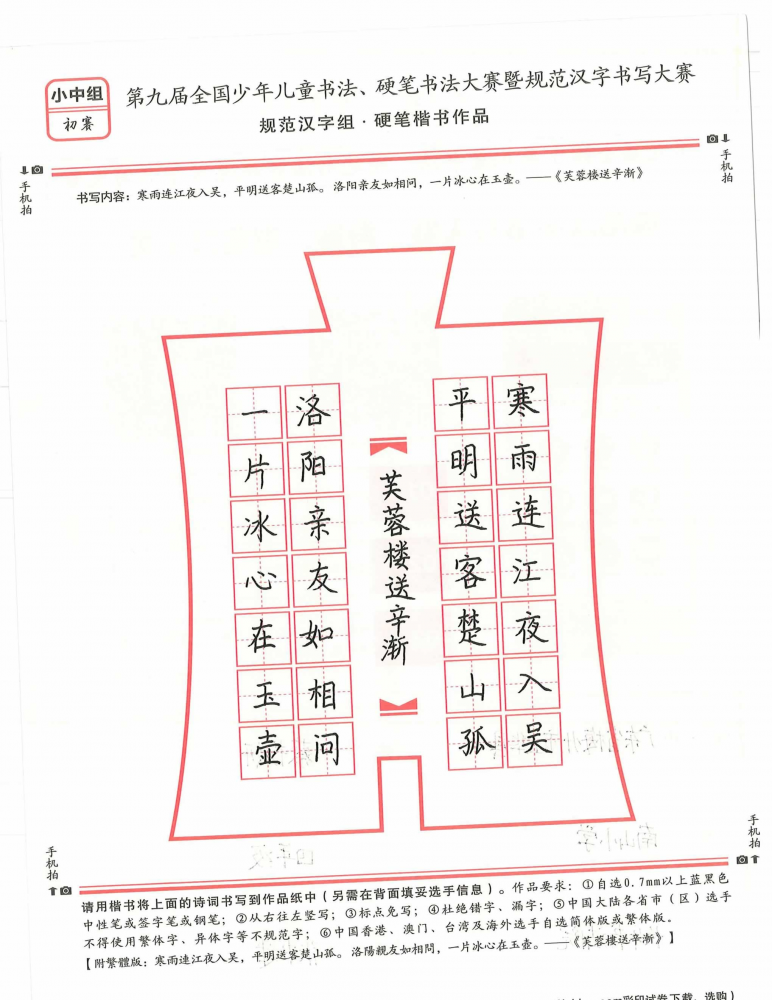 小中组
初赛
第九届全国少年儿童书法、硬笔书法大赛暨规范汉字书写大赛
规范汉字组·硬笔楷书作品
手机拍
手机拍
书写内容：寒雨连江夜入吴，平明送客楚山孤。洛阳亲友如相问，一片冰心在玉壶。——《芙蓉楼送辛渐》
寒雨连江夜入吴
平明送客楚山孤
芙蓉楼送辛渐
洛阳亲友如相问
一片冰心在玉壶
手机拍
手机拍
请用楷书将上面的诗词书写到作品纸中（另需在背面填妥选手信息）。作品要求：①自选0.7mm以上蓝黑色
中性笔或签字笔或钢笔；②从右往左竖写；③标点免写；④杜绝错字、漏字；⑤中国大陆各省市（区）选手
不得使用繁体字、异体字等不规范字；⑥中国香港、澳门、台湾及海外选手自选简体版或繁体版。
【附繁體版：寒雨連江夜入吳，平明送客楚山孤。洛陽親友如相問，一片冰心在玉壺。——《芙蓉楼送辛渐》】